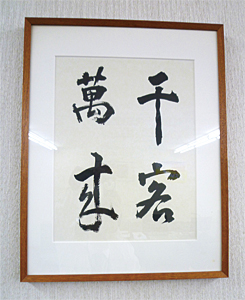 千客
萬来